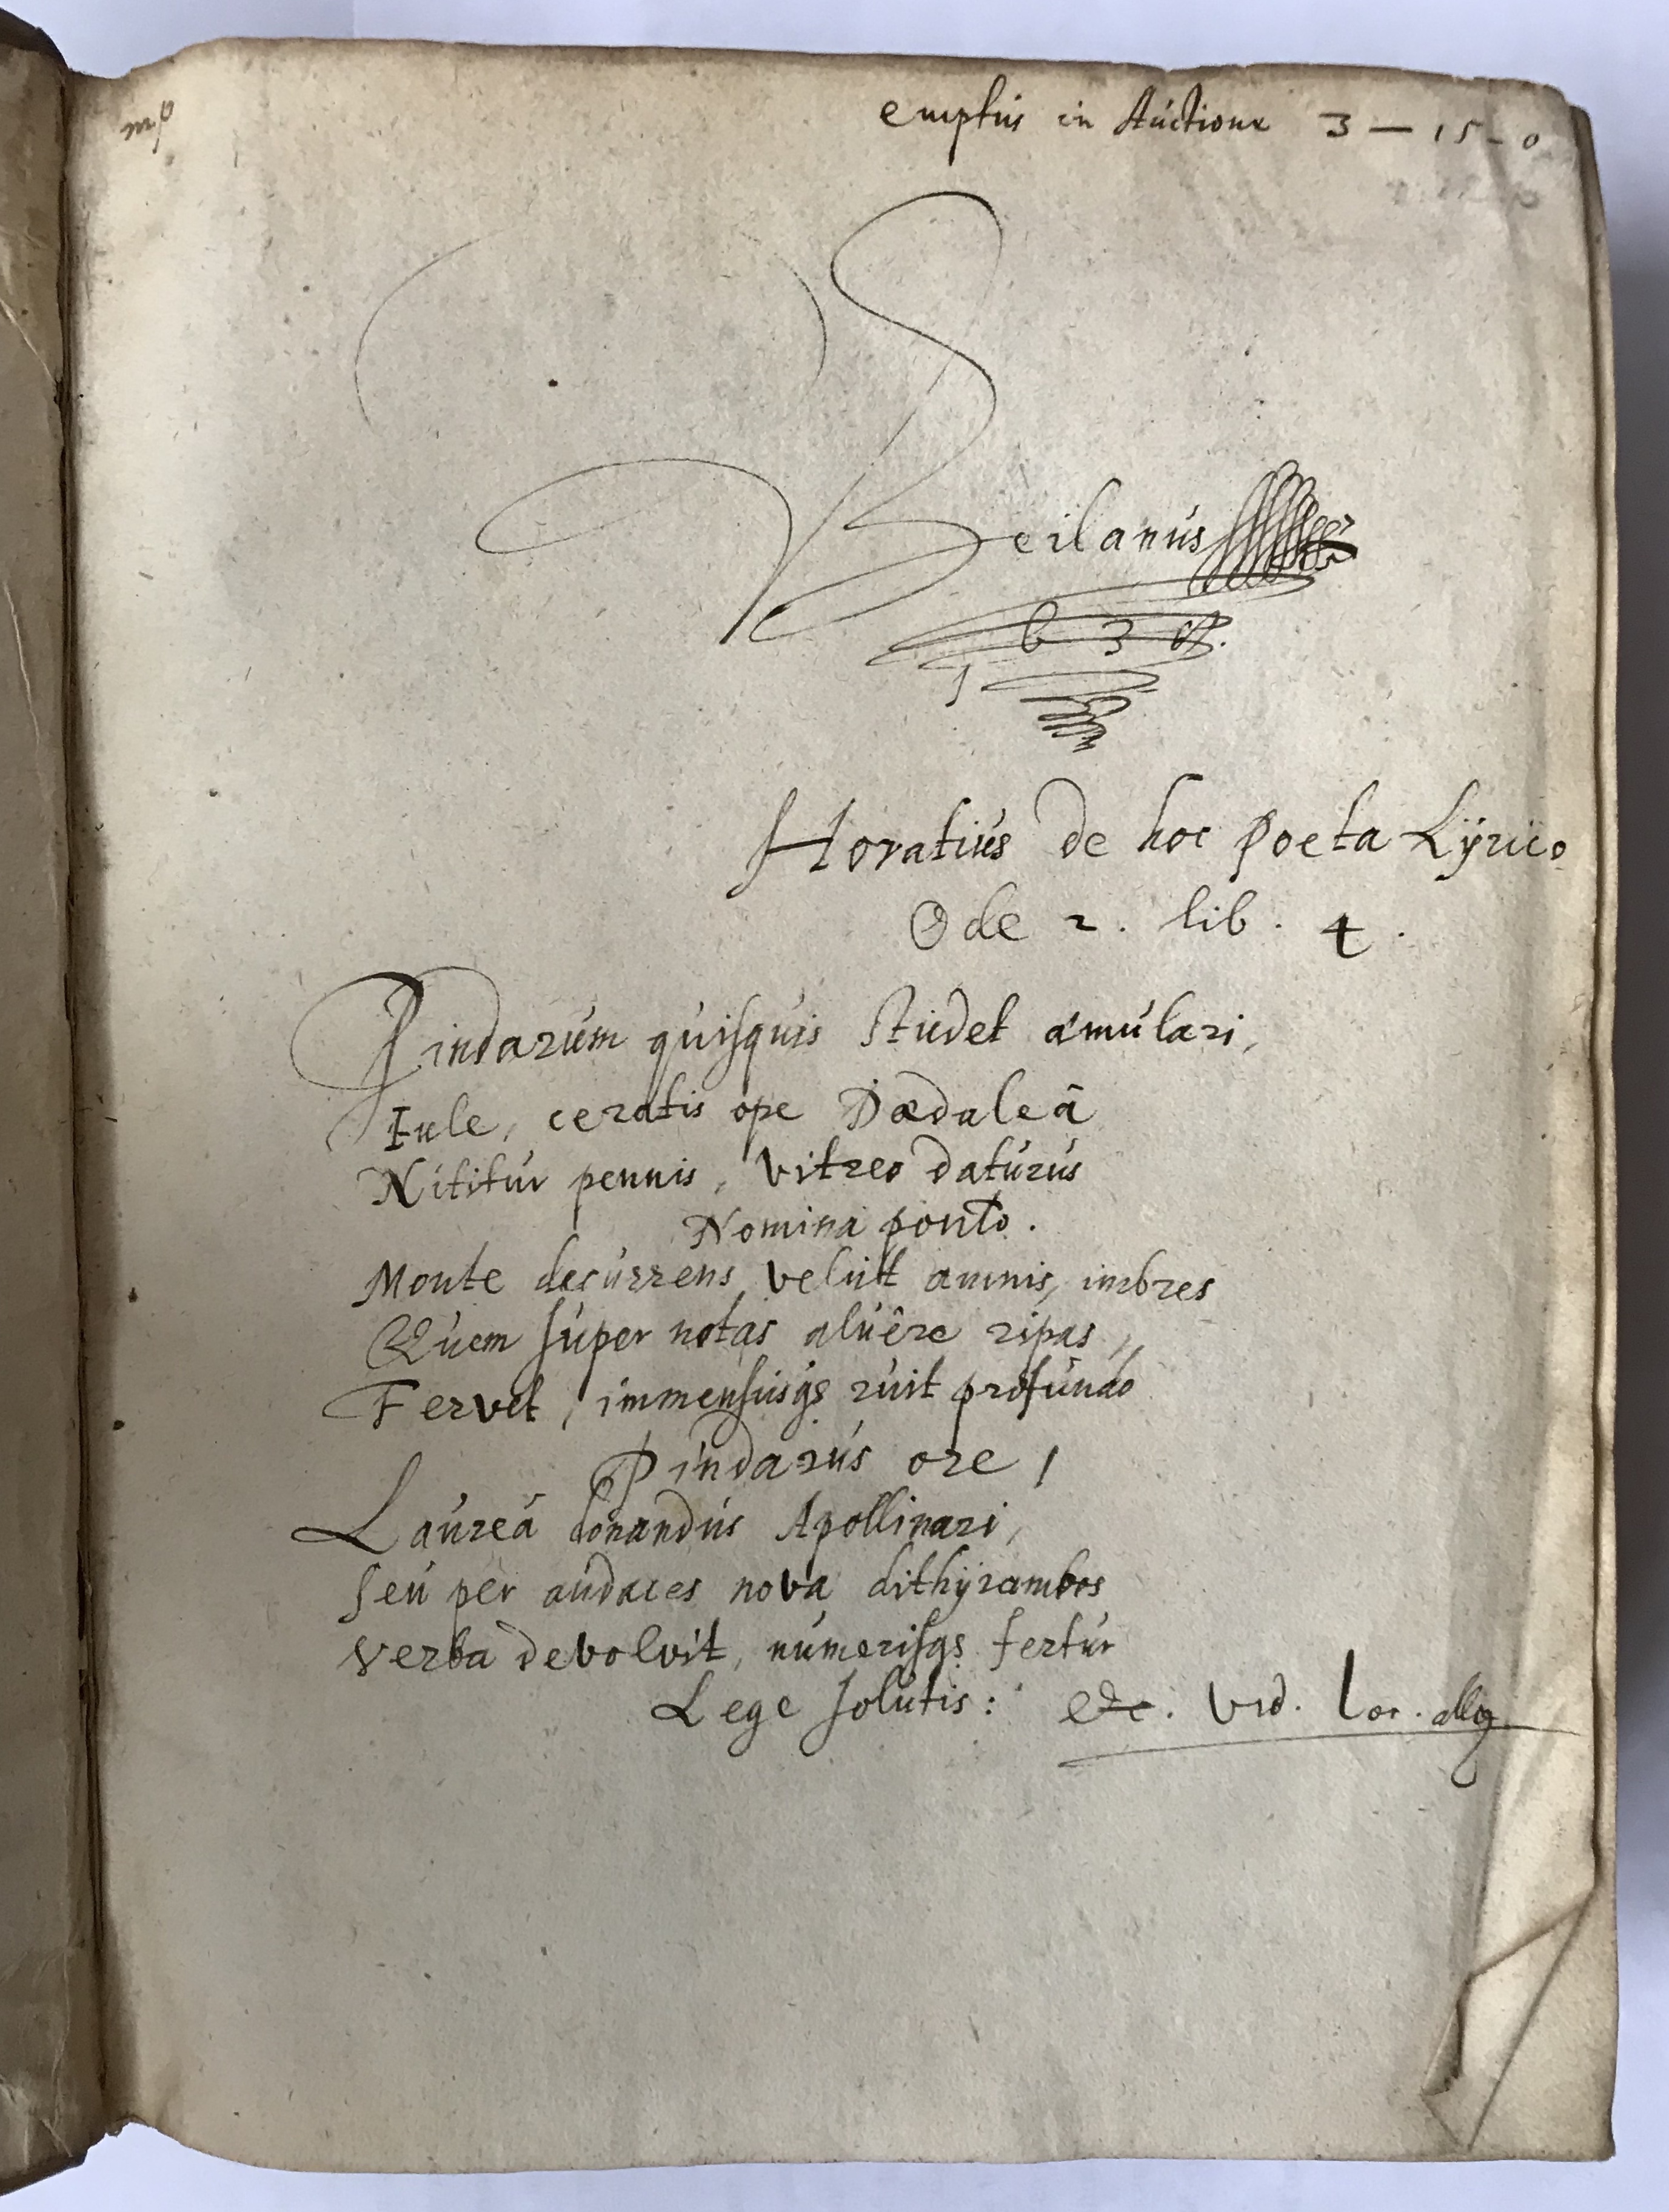 mp
emptus in Auctione 3 — 15 - 0
Beilanus
Horatius de hoc Poeta Lÿrico
Ode 2. lib. 4.
Pindarum quisquis studet æmulari,
Iule, ceratis ope Dædaleâ
Nititur pennis, vitreo daturus
Nomina ponto.
Monte decurrens, velut amnis, imbres
Quem super notas aluêre ripas,
Fervet, immensusqs ruit profundo
Pindarus ore,
Laureâ donandus Apollinari,
Seu per audaces nova dithÿrambos
Verba devolvit, numerisqs fertur
Lege solutis: &c. vid. loc. allg